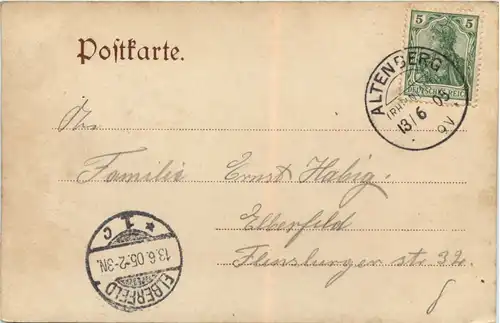 Postkarte.
5 5
DEUTSCHES REICH
ALTENBERG
13/6 05
9V.
An
Familie Ernst Habig.
Elberfeld
Flensburger str. 32.
* 1 c
13.6.05.2-3N.
ELBERFELD